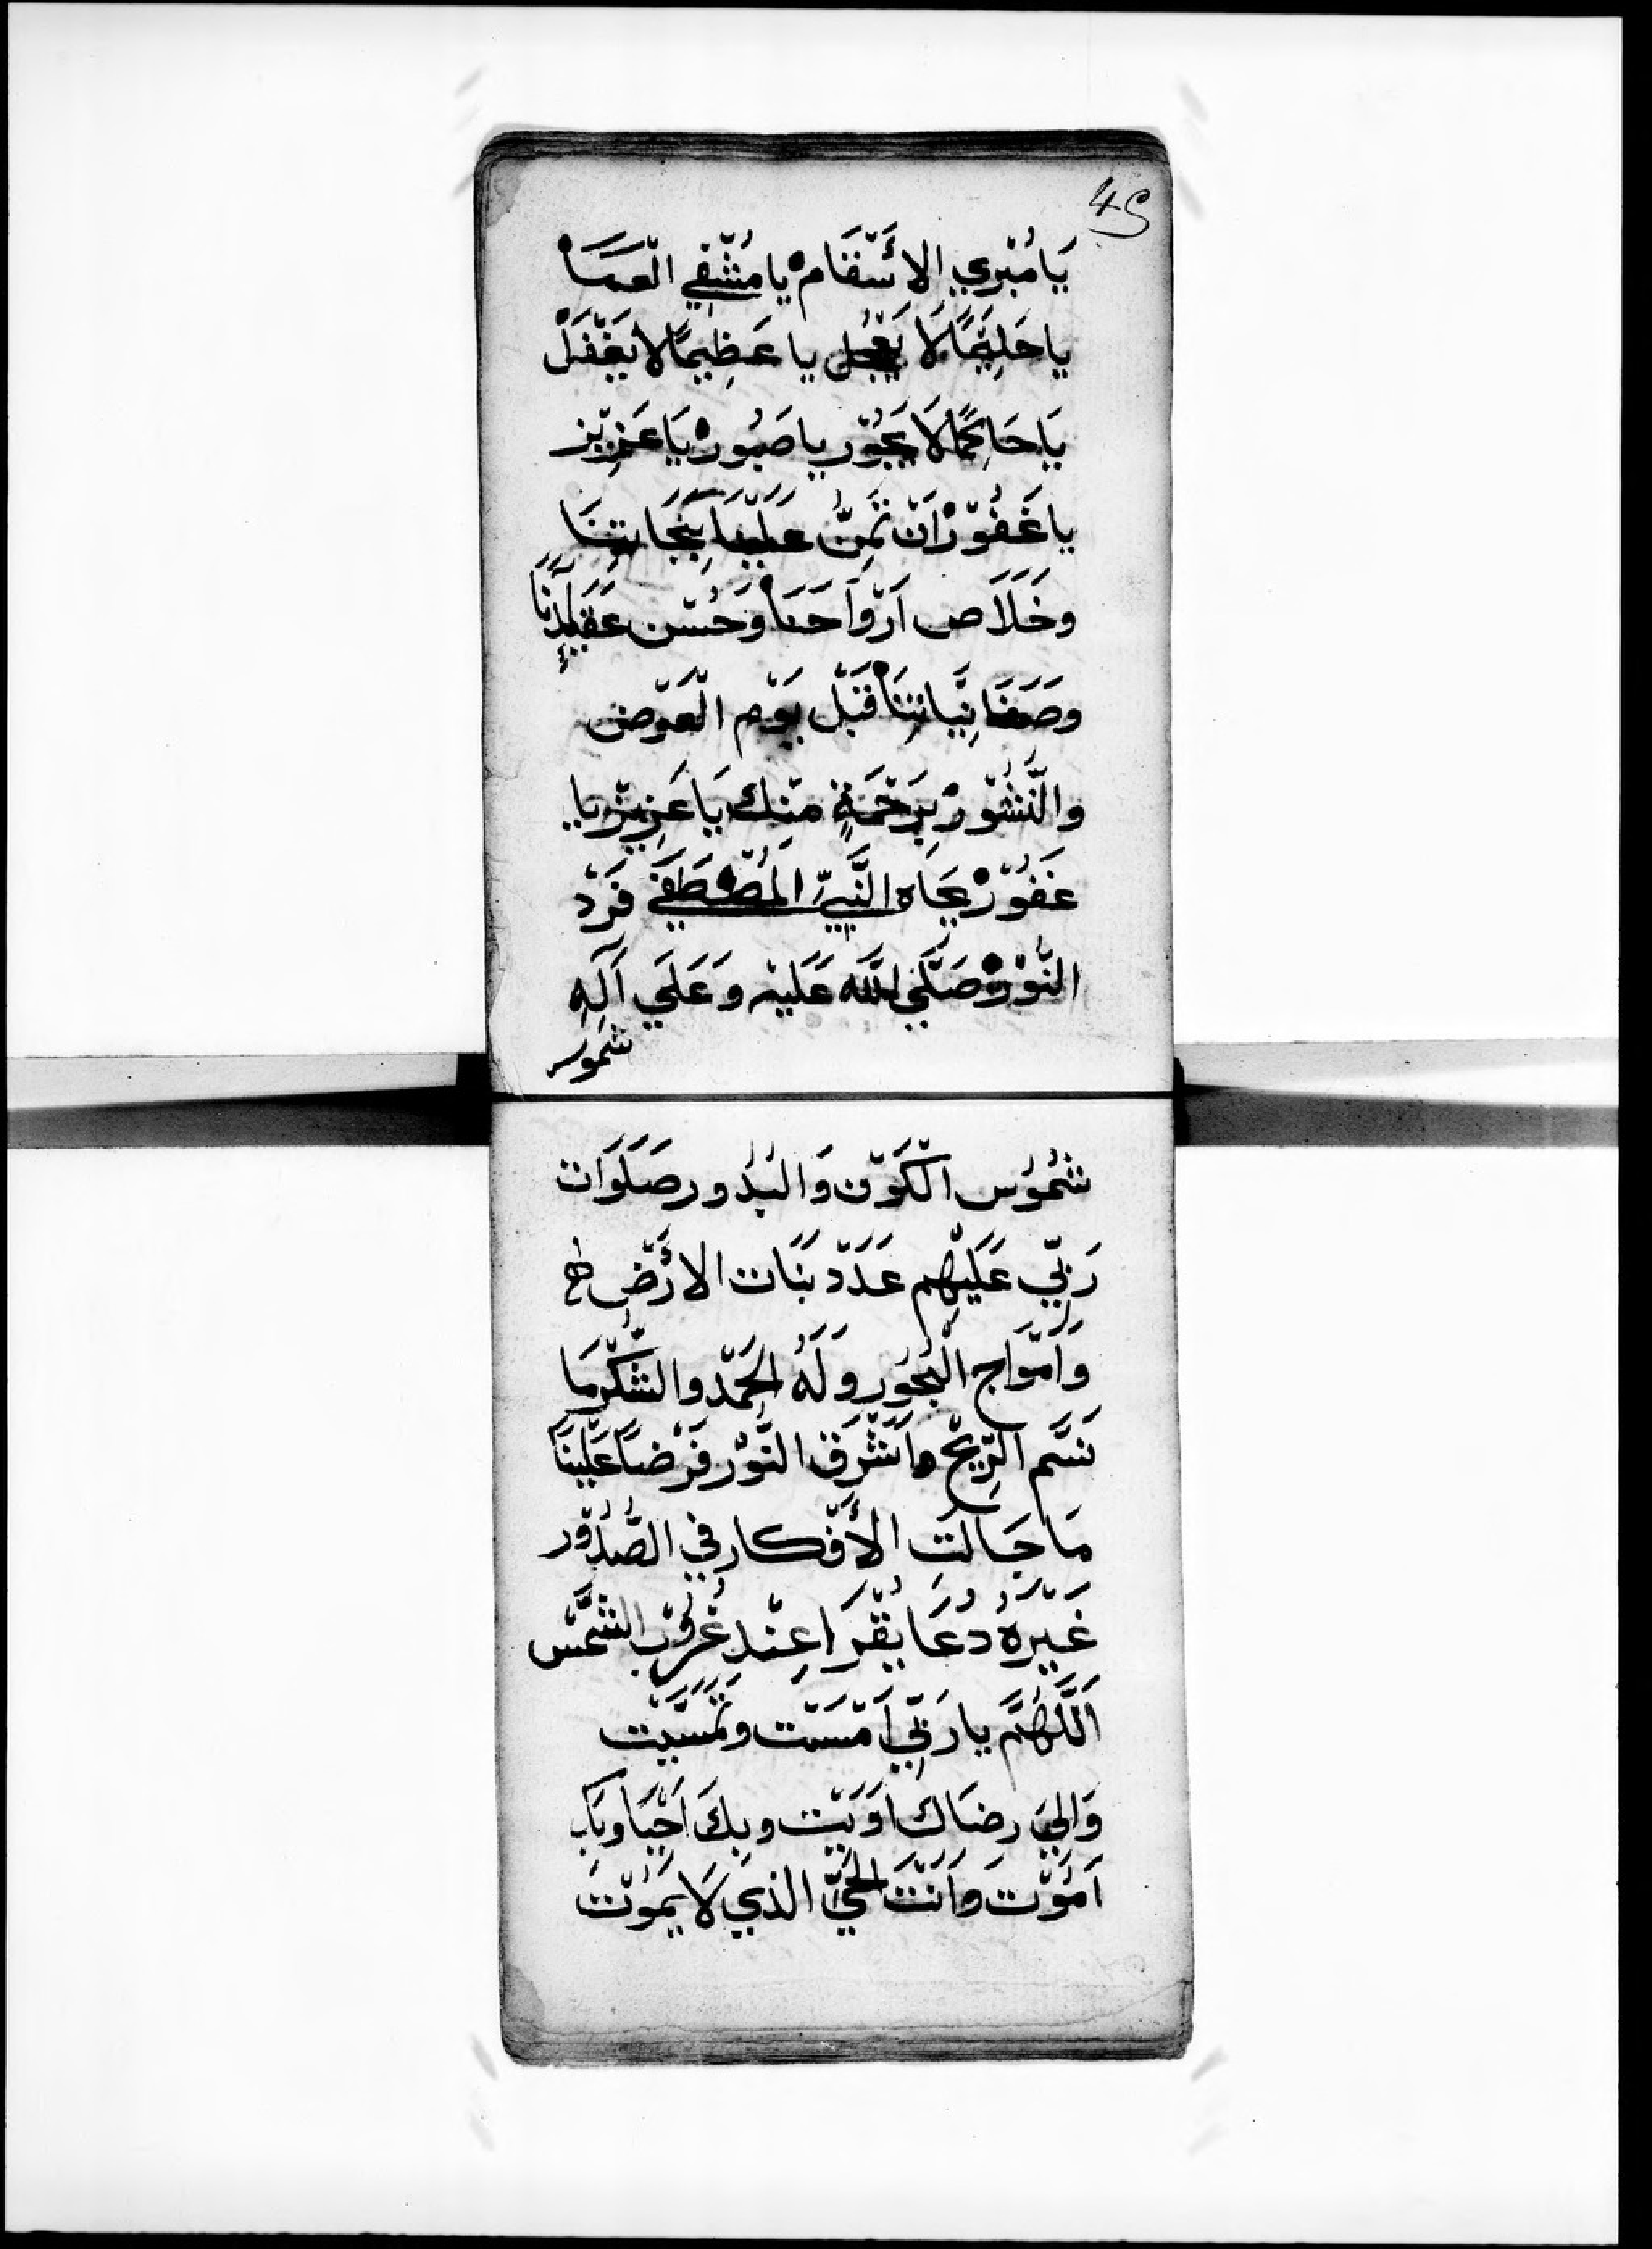 45
يَا مُبْرِي الأَسْقَامْ يا مُشْفِي الْعَمَا
يا حَلِيْمًا لَا يَعْجُل يا عَظِيمًا لا يَغْفَلْ
يَا حَاكِمًا لَا يَجُوْر يا صَبُورْ يَا عَزِيْز
يا غَفُوْرْ اَنْ تَمِنَّ عَلَيْنَا بِنَجَاتِنَا
وخَلَاَص اَرْوَاحَنَا وَحُسْن عَقَايِدْنَا
وصَفَا نِيَّاتِنَا قَبْل يَوْم الْعَرْض
والنُّشُوْرْ بِرَحْمَةٍ مِنْك يَا عَزِيْز يا
غَفُوْرْ بِجَاه النَّبِيّ الْمُصْطَفَي فَرْد
النُّوْرْ صَلَّي اللَّه عَلَيْه وَعَلَي آلِهِ
شموس
شُمُوُس الْكَوْن وَالبُدُور صَلَوَات
رَبِّي عَلَيْهِم عَدَدْ نَبَات الأَرْضِ
وَاَمْوَاج الْبُحُوُر وَلَهُ الْحَمْد والشُّكْر مَا
نَسَّم الرِّيْحْ واَشْرَق النُّوْر فَرْضاً عَلَيْنَا
مَا جَالَتَ الأَفْكار فِي الصُّدُوْر
غَيْرَهُ دُعَا يُقْرَا عِنْدِ غُرُوْب الشَّمْس
اَللَّهُمَّ يا رَبِّي اَمْسَيْت وتَمَسَّيْت
وَاِلِيَ رِضَاك اَوَيْت وبِكَ اَحْيَا وبِكَ
اَمُوْت وَاَنْتَ الْحَيّ الذي لَا يَمُوْتَ